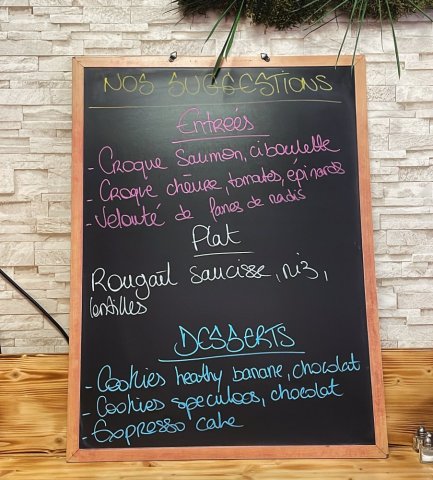 NOS SUGGESTIONS
Entreés
- Croque Saumon, ciboulette
- Croque chèvre, tomates, épinards
- Velouté de fanes de radis
Plat
Rougail saucisse, riz,
lentilles
DESSERTS
- Cookies healthy banane, chocolat
- Cookies speculoos, chocolat
- Expresso cake